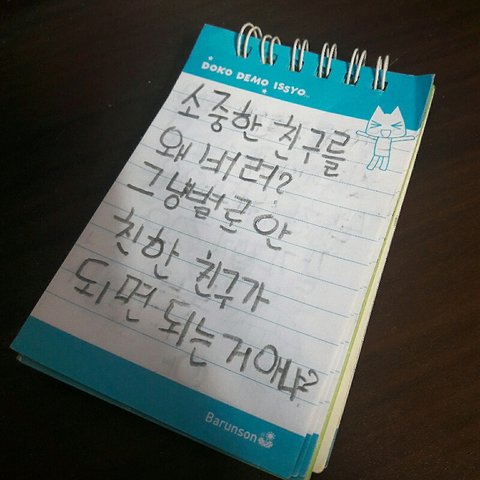 DOKO DEMO ISSYO..
소중한 친구를
왜 버려?
그냥별로 안
친한 친구가
되면 되는 거 애냐?
Barunson